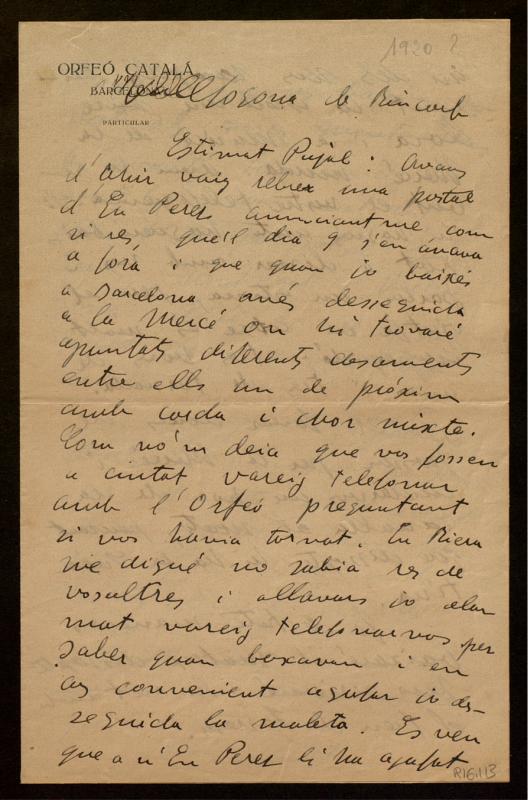 1920?
ORFEÓ CATALÁ
BARCELONA
PARTICULAR
Fogona de Rincorb
Estimat Pujol: Avans
d'ahir vaig rebrer una postal
d'En Peres anunciantme com
si res, que'l dia 9 s'en anava
a fora i que quan jo baixés
a Barcelona anés desseguida
a la Mercé on hi trovaré
apuntats diferents casaments
entre ells un de próxim
amb corda i chor mixte.
Com no'm deia que vos fossen
a ciutat vareig telefonar
amb l'Orfeó preguntant
si vos havia tornat. En Riera
me digué no sabia res de
vosaltres i allavors jo alar
mat vareig telefonarvos per
saber quan baxavan i en
cas convenient agafar jo des-
seguida la maleta. Es veu
que a n'En Peres li ha agafat
R16.113